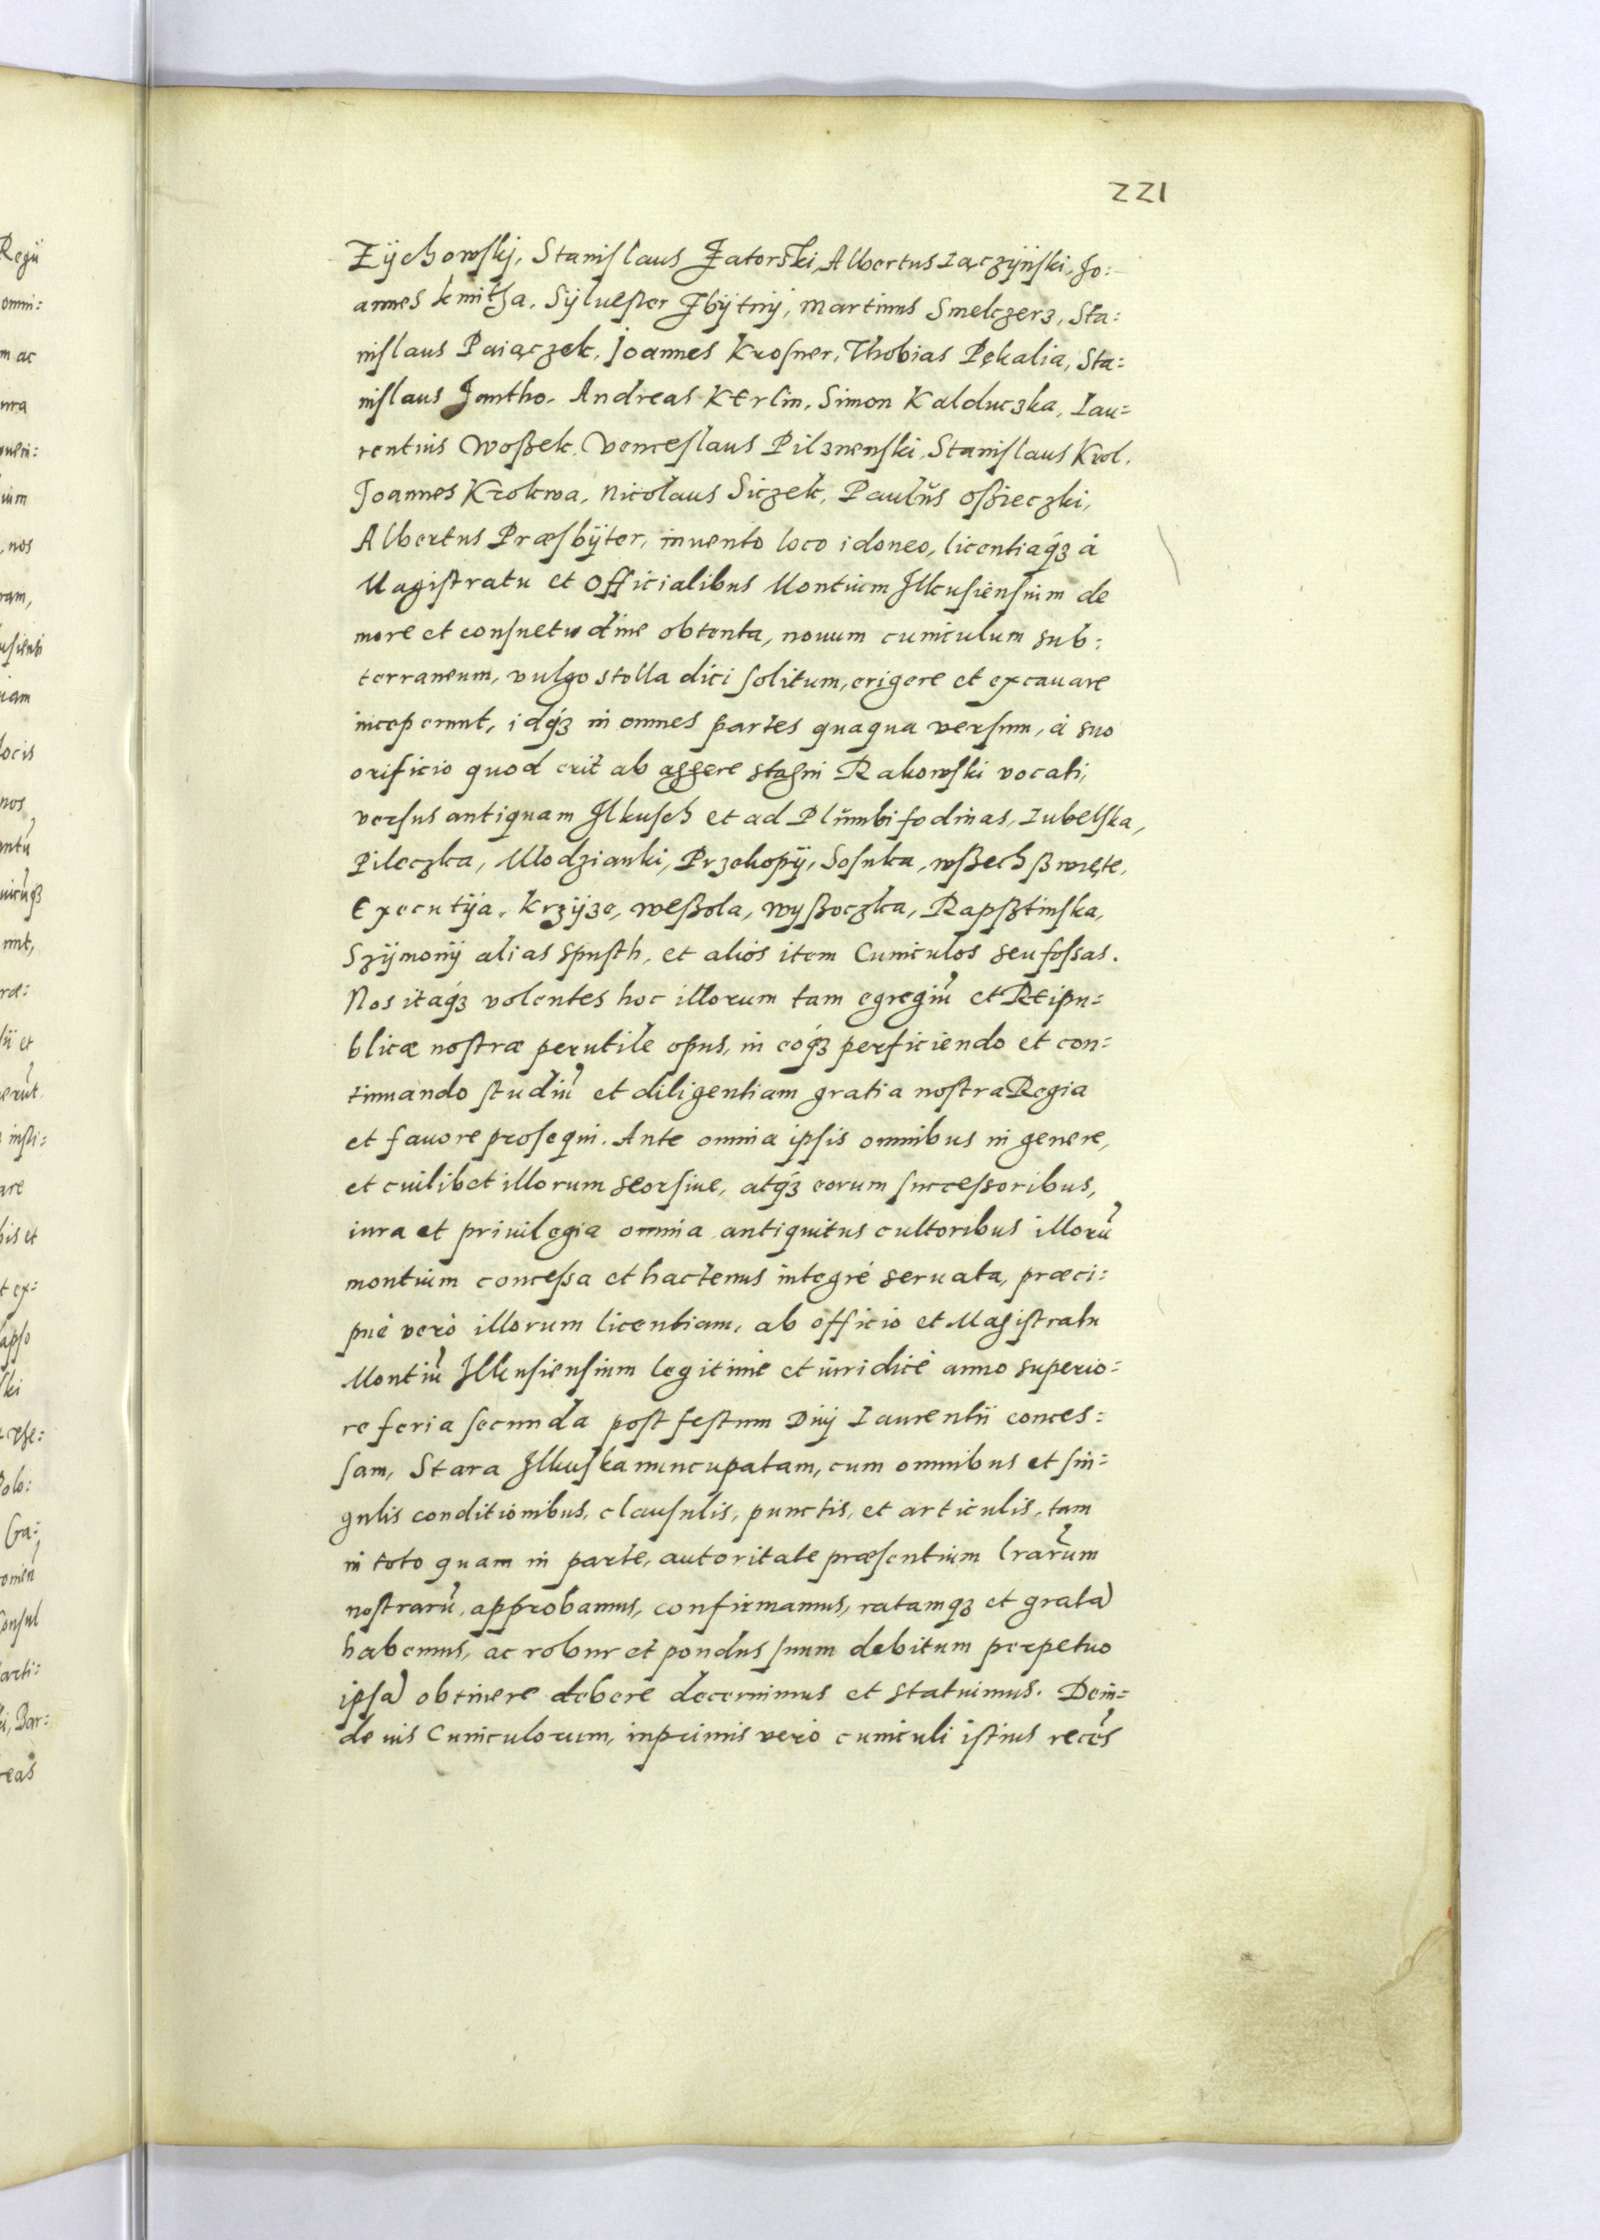 221
Zÿchowskj, Stanislaus Zatorski, Albertus Łączÿński, Jo:
annes kmitha, Sÿluester Zbÿtnÿ, Martinus Smelczerz, Sta:
nislaus Paiączek, Joannes Krosner, Thobias Pękalia, Sta:
nislaus Jantho, Andreas Kerlin, Simon Kalduczka, Lau=
rentius Woßek, Venceslaus Pilznenski, Stanislaus Krol,
Joannes Krokwa, Nicolaus Siczek, Paulus Oßieczki,
Albertus Præsbÿter, inuento loco idoneo, licentiaq́ꝫ à
Magistratu et Officialibus Montium Ilkusiensium de
more et consuetudine obtenta, nouum cuniculum sub:
terraneum, vulgo stolla dici solitum, erigere et excauare
inceperunt, idq́ꝫ in omnes partes quaqua versum, à suo
orificio quod erit ab aggere stagni Rakowski vocati,
versus antiquam Ilkusch et ad Plumbifodinas, Lubelska,
Pileczka, Młodzianki, Przekopÿ, Sosnka, wßech ßwięte,
Executÿa, Krzÿze, weßola, wyßoczka, Rapsztinska,
Szÿmonÿ alias spusth, et alios item Cuniculos seu fossas.
Nos itaq́ꝫ volentes hoc illorum tam egregiũ et Reipu=
blicæ nostræ perutile opus, in eoq́ꝫ perficiendo et con=
tinuando studiũ et diligentiam gratia nostra Regia
et fauore prosequi. Ante omnia ipsis omnibus in genere,
et cuilibet illorum seorsiue, atq́ꝫ eorum successoribus,
iura et priuilegia omnia antiquitus cultoribus illorũ
montium concessa et hactenus integré seruata, præci:
pué veró illorum licentiam, ab officio et Magistratu
Montiũ Ilkusiensium legitimé et iuridicé anno superio=
re feria secunda post festum Diuj Laurentii conces=
sam, Stara Ilkuska nuncupatam, cum omnibus et sin=
gulis conditionibus, clausulis, punctis, et articulis, tam
in toto quam in parte, autoritate præsentium lrarũm
nostrarũ, approbamus, confirmamus, ratamqꝫ et gratã
habemus, ac robur et pondus suum debitum perpetuo
ipsã obtinere debere decernimus et statuimus. Dein=
de uis Cuniculorum, inprimis veró cuniculi istius recẽs